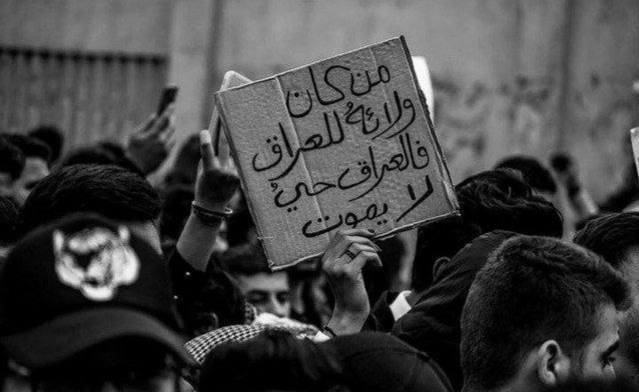 من كان
ولائهُ للعراق
فالعراق حيُ
لا يموت